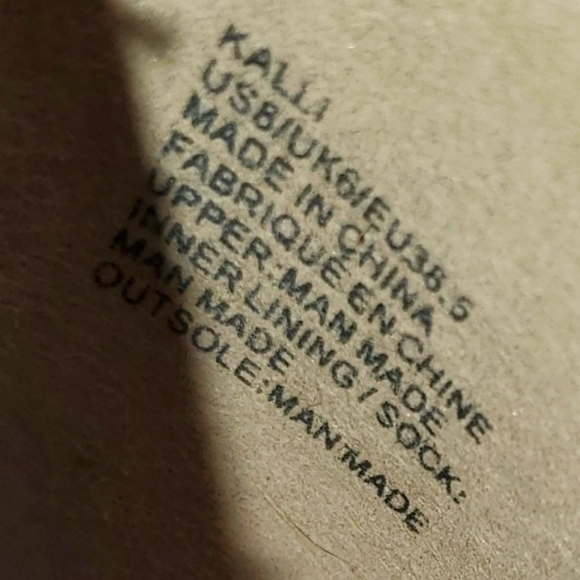 KALI4
US8/UK6/EU38.5
MADE IN CHINA
FABRIQUÉ EN CHINE
UPPER:MAN MADE
INNER LINING / SOCK:
MAN MADE
OUTSOLE:MAN MADE